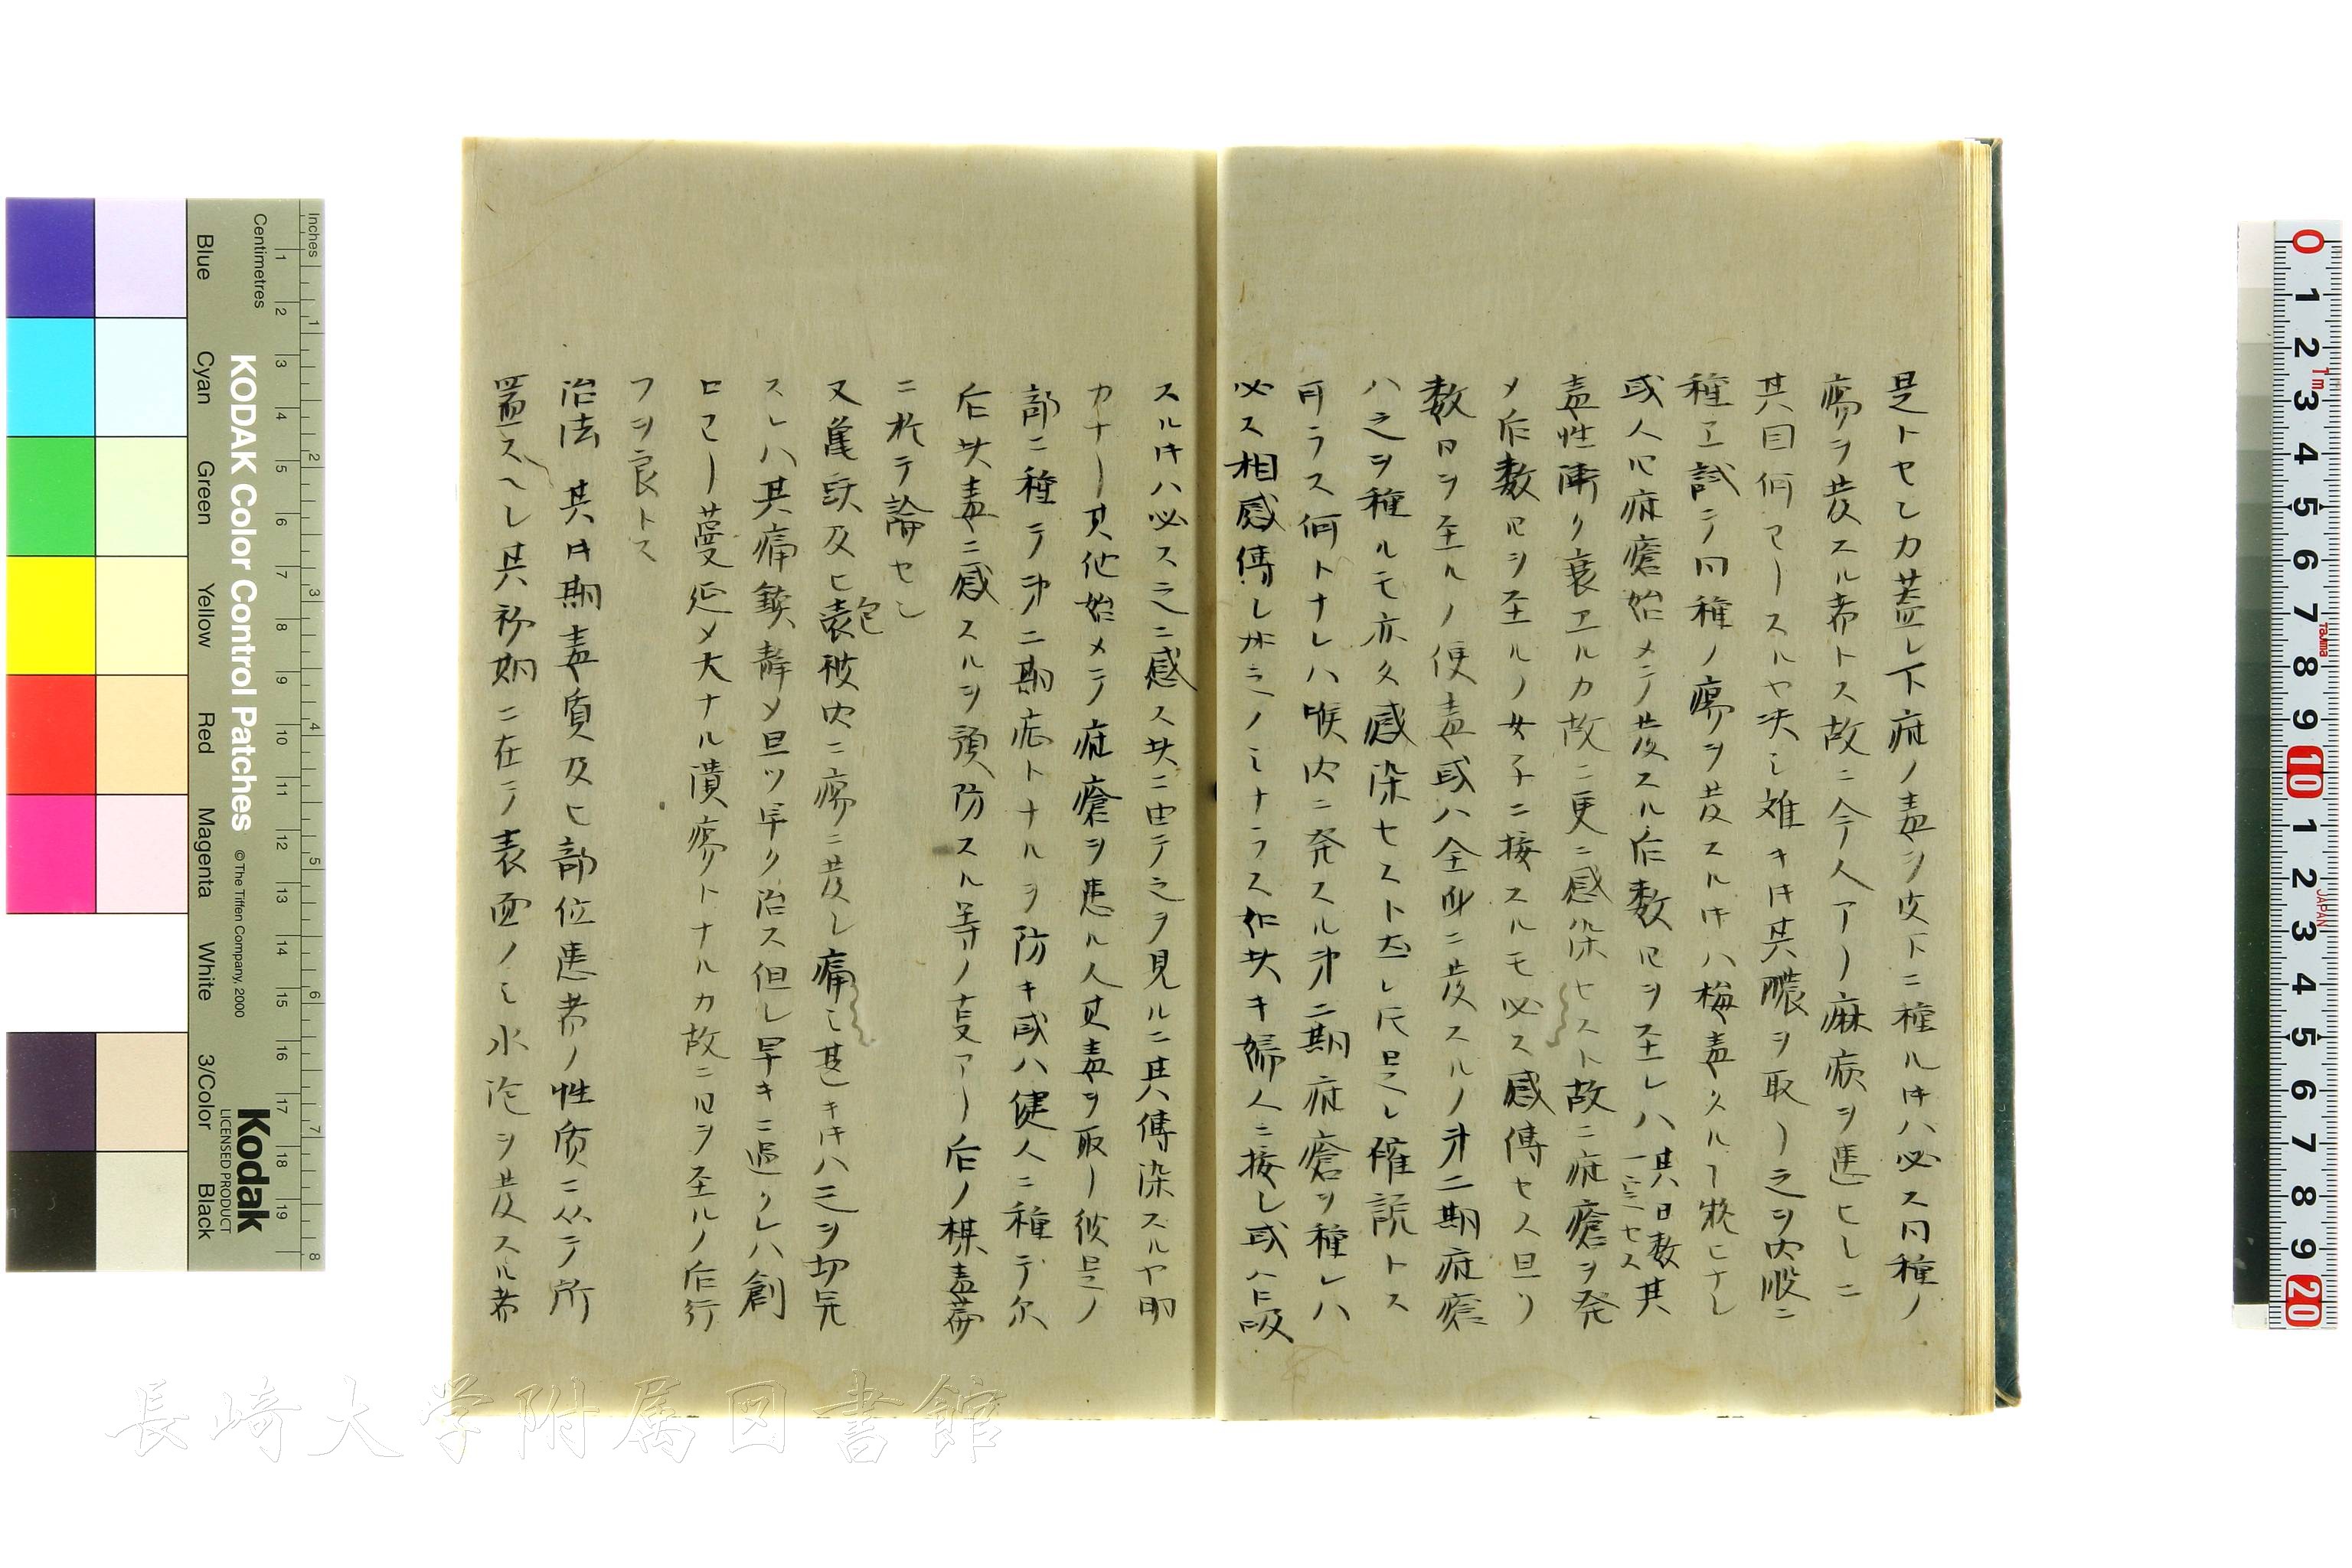 是トセンカ蓋シ下疳ノ毒ヲ皮下ニ種ルキハ必ス同種ノ
瘍ヲ発スル者トス故ニ今人アリ麻疾ヲ患ヒシニ
其因何タリスルヤ决シ難キキ其膿ヲ取リ之ヲ内股ニ
種エ試テ同種ノ瘍ヲ発スルキハ梅毒タルヿ疑ヒナシ
或人曰疳瘡始メテ発スル后数日ヲ至レハ其日数一定セス其
毒性漸ク衰エルカ故ニ更ニ感染セスト故ニ疳瘡ヲ発
メ后数日ヲ至ルノ女子ニ接スルモ必ス感傳セス且ツ
数日ヲ至ルノ便毒或ハ全身ニ発スルノ第二期疳瘡
ハ之ヲ種ルモ亦タ感染セスト然レ𪜈是レ確説トス
可ラス何トナレハ喉内ニ発スル第二期疳瘡ヲ種レハ
必ス相感傳シ加之ノミナラス如此キ婦人ニ接シ或ハ吸
スルキハ必ス之ニ感ス此ニ由テ之ヲ見ルニ其傳染スルヤ明
カナリ其他始メテ疳瘡ヲ患ル人其毒ヲ取リ彼是ノ
部ニ種テ第二期症トナルヲ防キ或ハ健人ニ種テ尓
后此毒ニ感スルヲ預防スル等ノ㕝アリ后ノ楳毒篇
ニ於テ論セン
又亀頭及ヒ包表被内ニ瘍ニ発シ痛ミ甚キキハ之ヲ切完
スレハ其痛鋭静メ且ツ早ク治ス但シ早キニ過クレハ創
口ヨリ蔓延メ大ナル潰瘍トナルカ故ニ日ヲ至ルノ后行
フヲ良トス
治法 其キ期毒質及ヒ部位患者ノ性质ニ从テ所
置スヘシ其初期ニ在テ表面ノミ水疱ヲ発スル者
KODAK Color Control Patches
©The Tiffen Company, 2000
Kodak
LICENSED PRODUCT
Inches
Centimetres
Blue
Cyan
Green
Yellow
Red
Magenta
White
3/Color
Black
長崎大学附属図書館